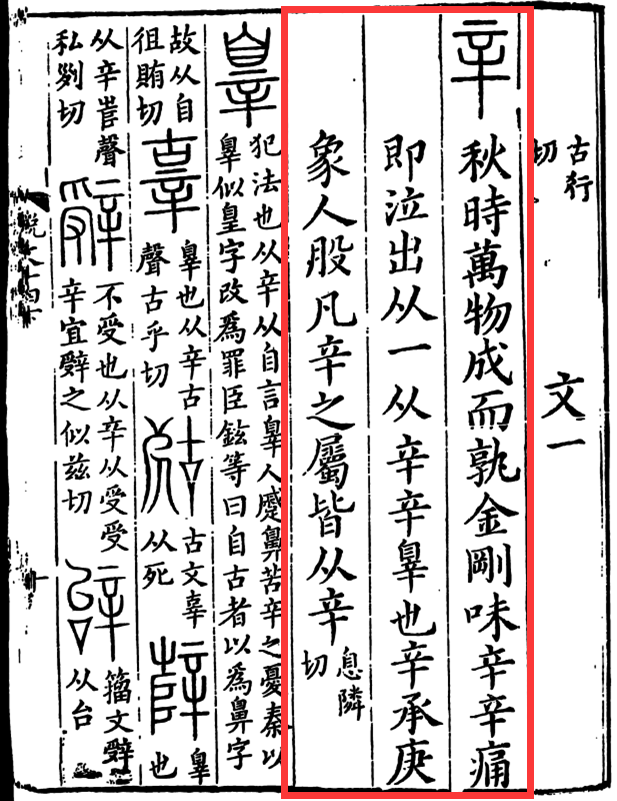 古行切 文一
辛 秋時萬物成而孰金剛味辛辛痛
即泣出从一从辛辛辠也辛承庚
象人股凡辛之屬皆从辛 息隣切
辠 犯法也从辛从自言辠人蹙鼻苦辛之憂秦以
辠似皇字改爲罪臣鉉等曰自古者以爲鼻字
故从自
徂賄切
辜 辠也从辛古
聲古乎切
古文辜
从死
辥 辠
也
从辛𡴎聲
私列切
辤 不受也从辛从受受
辛宜辤之似兹切
辝 籒文辤
从台
說文十四下